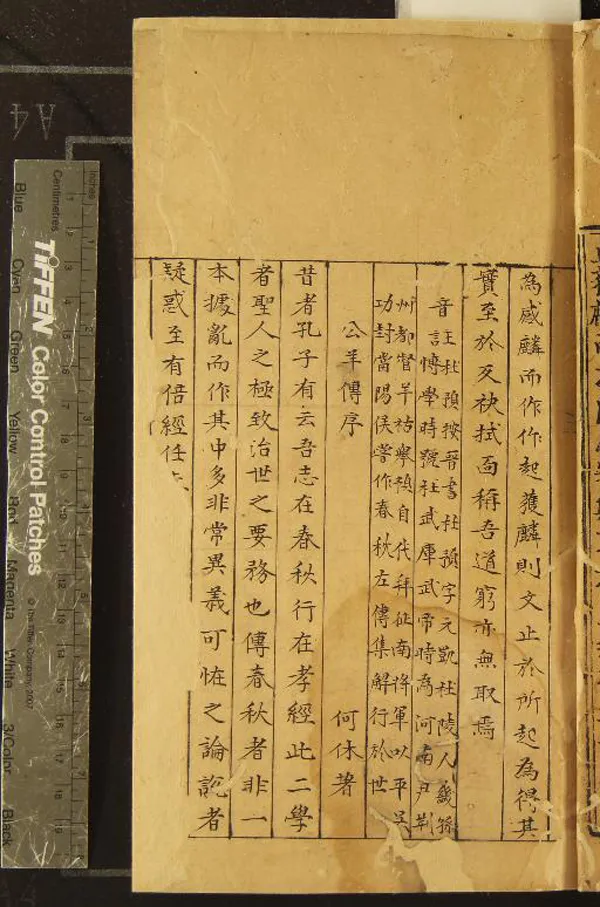 為感麟而作作起獲麟則文止於所起為得其
實至於反袂拭面稱吾道窮亦無取焉
音註杜預按晉書杜預字元凱杜陵人畿孫
博學時號杜武庫武帝時為河南尹荆
州都督羊祜舉預自代拜征南將軍以平吳
功封當陽侯嘗作春秋左傳集解行於世
公羊傳序 何休著
昔者孔子有云吾志在春秋行在孝經此二學
者聖人之極致治世之要務也傳春秋者非一
本據亂而作其中多非常異義可恠之論說者
疑惑至有倍經任
Inches
Centimetres
TIFFEN Color Control Patches
© The Tiffen Company, 2007
Blue Cyan Green Yellow Red Magenta White 3/Color Black
A4